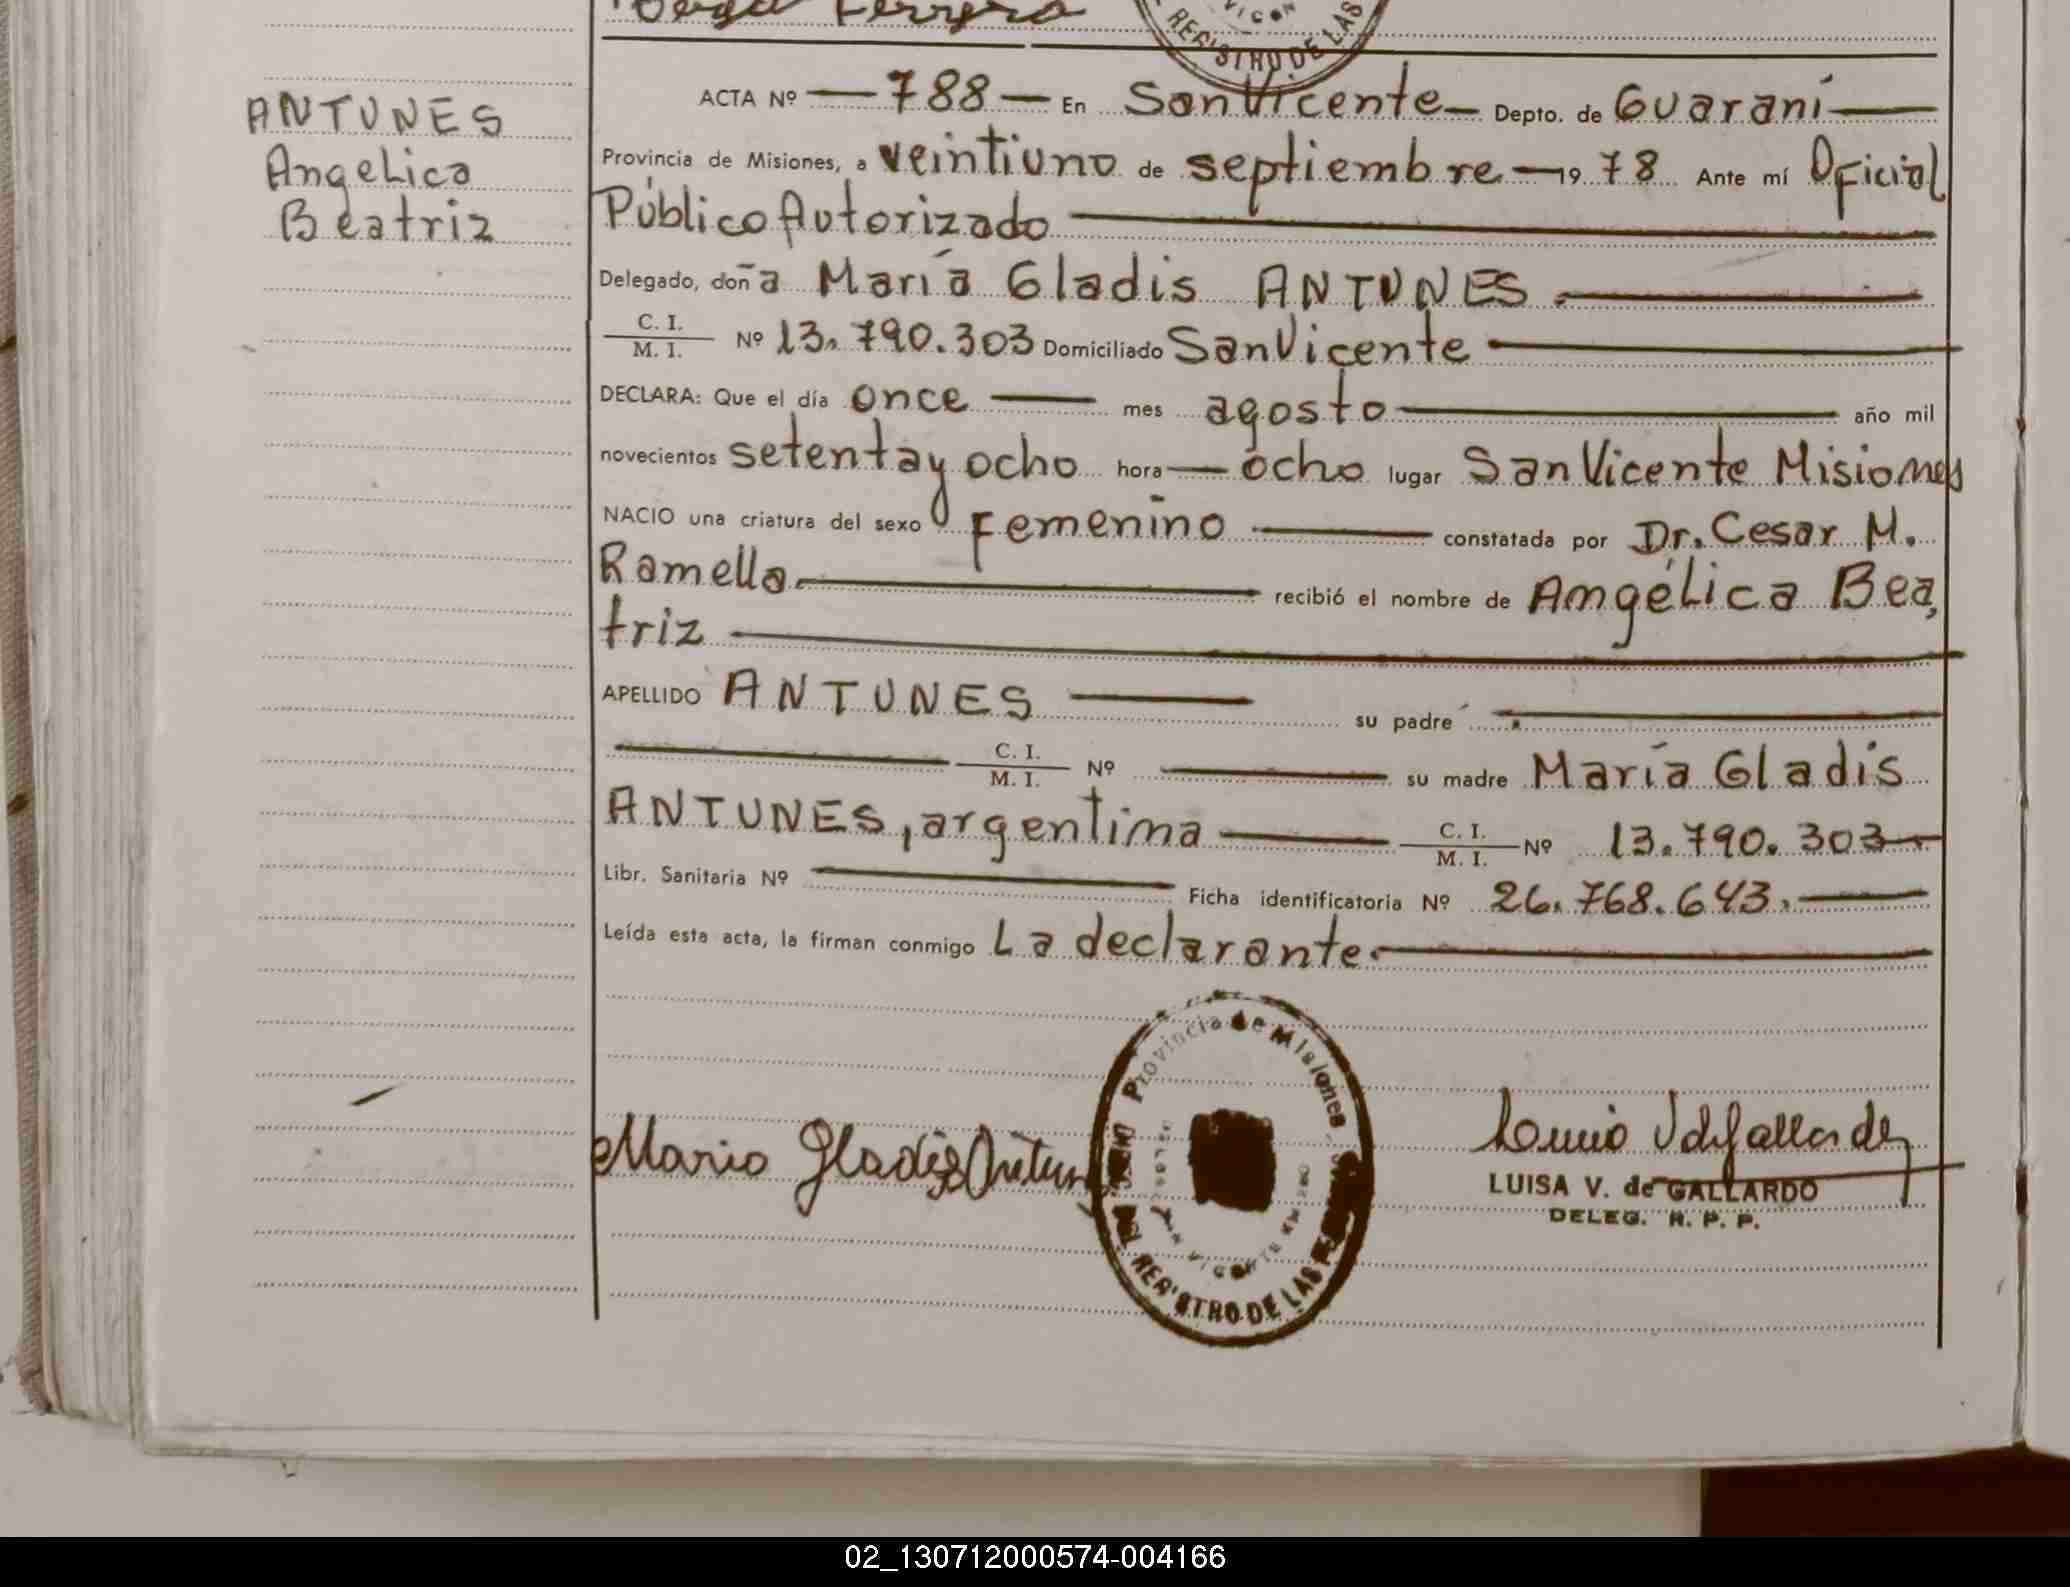 ANTUNES
Angelica
Beatriz
VICEN
REGISTRO DE LAS
ACTA Nº — 788 — En San Vicente — Depto. de Guaraní —
Provincia de Misiones, a veintiuno de septiembre — 19 78 Ante mí Oficial
Público Autorizado —
Delegado, doña María Gladis ANTUNES. —
C. I. / M. I. Nº 13.790.303 Domiciliado San Vicente —
DECLARA: Que el día once — mes agosto — año mil
novecientos setenta y ocho hora — ocho lugar San Vicente Misiones
NACIO una criatura del sexo Femenino — constatada por Dr. Cesar M.
Ramella. — recibió el nombre de Angélica Bea,
triz —
APELLIDO ANTUNES — su padre —
— C. I. / M. I. Nº — su madre María Gladis
ANTUNES, argentina — C. I. / M. I. Nº 13.790.303 —
Libr. Sanitaria Nº — Ficha identificatoria Nº 26.768.643. —
Leída esta acta, la firman conmigo La declarante. —
Provincia de Misiones
REGISTRO DE LAS
Maria Gladis Antun
LUISA V. de GALLARDO
DELEG. R. P. P.
02_130712000574-004166